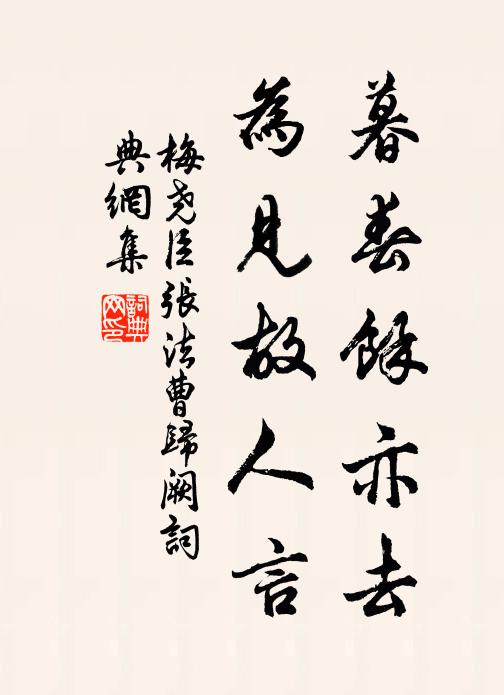 暮春餘亦去
為見故人言
梅堯臣張法曹歸闕詞
典網集
詞典網印